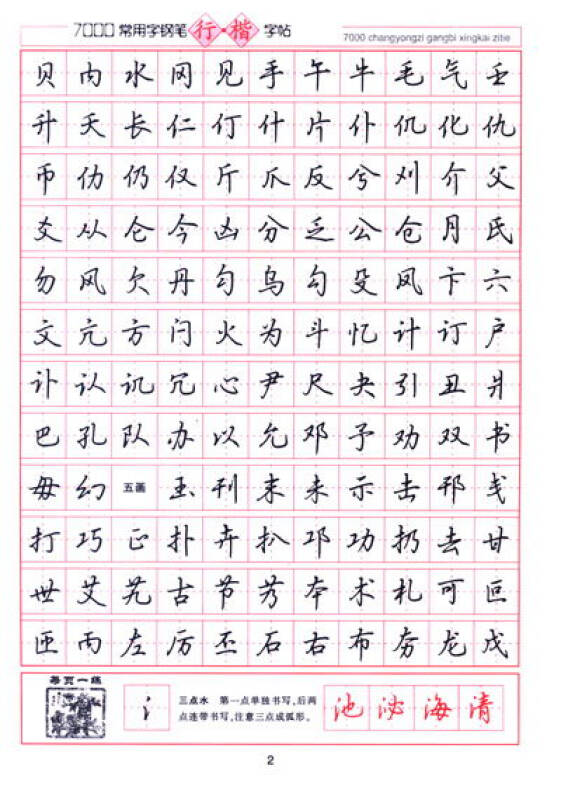 7000常用字钢笔行·楷字帖
7000 changyongzi gangbi xingkai zitie
贝 内 水 冈 见 手 午 牛 毛 气 壬
升 夭 长 仁 仃 什 片 仆 仉 化 仇
币 仂 仍 仅 斤 爪 反 兮 刈 介 父
爻 从 仑 今 凶 分 乏 公 仓 月 氏
勿 风 欠 丹 匀 乌 勾 殳 凤 卞 六
文 亢 方 闩 火 为 斗 忆 计 订 户
讣 认 讥 冗 心 尹 尺 夬 引 丑 爿
巴 孔 队 办 以 允 邓 予 劝 双 书
毋 幻 五画 玉 刊 末 未 示 击 邗 戋
打 巧 正 扑 卉 扒 邛 功 扔 去 甘
世 艾 艽 古 节 艿 本 术 札 可 叵
匝 丙 左 厉 丕 石 右 布 夯 龙 戊
每页一练
氵
三点水 第一点单独书写,后两
点连带书写,注意三点成弧形。
池 泌 海 清
2